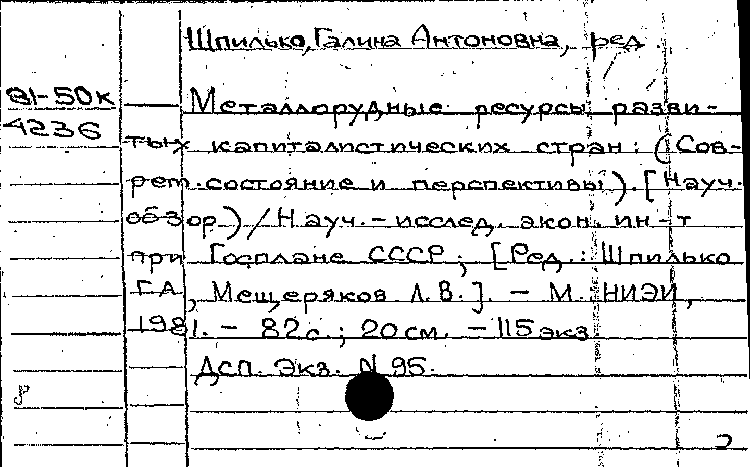 Шпилько, Галина Антоновна, ред.
81-50к
4236
Металлорудные ресурсы разви-
тых капиталистических стран: (Сов-
рем. состояние и перспективы). [Науч.
обзор) / Науч.-исслед. экон. ин-т
при Госплане СССР; [Ред.: Шпилько
Г.А., Мещеряков Л.В.]. - М.: НИЭИ,
1981. - 82с.; 20см. - 115экз
Дсп. Экз. N 95.